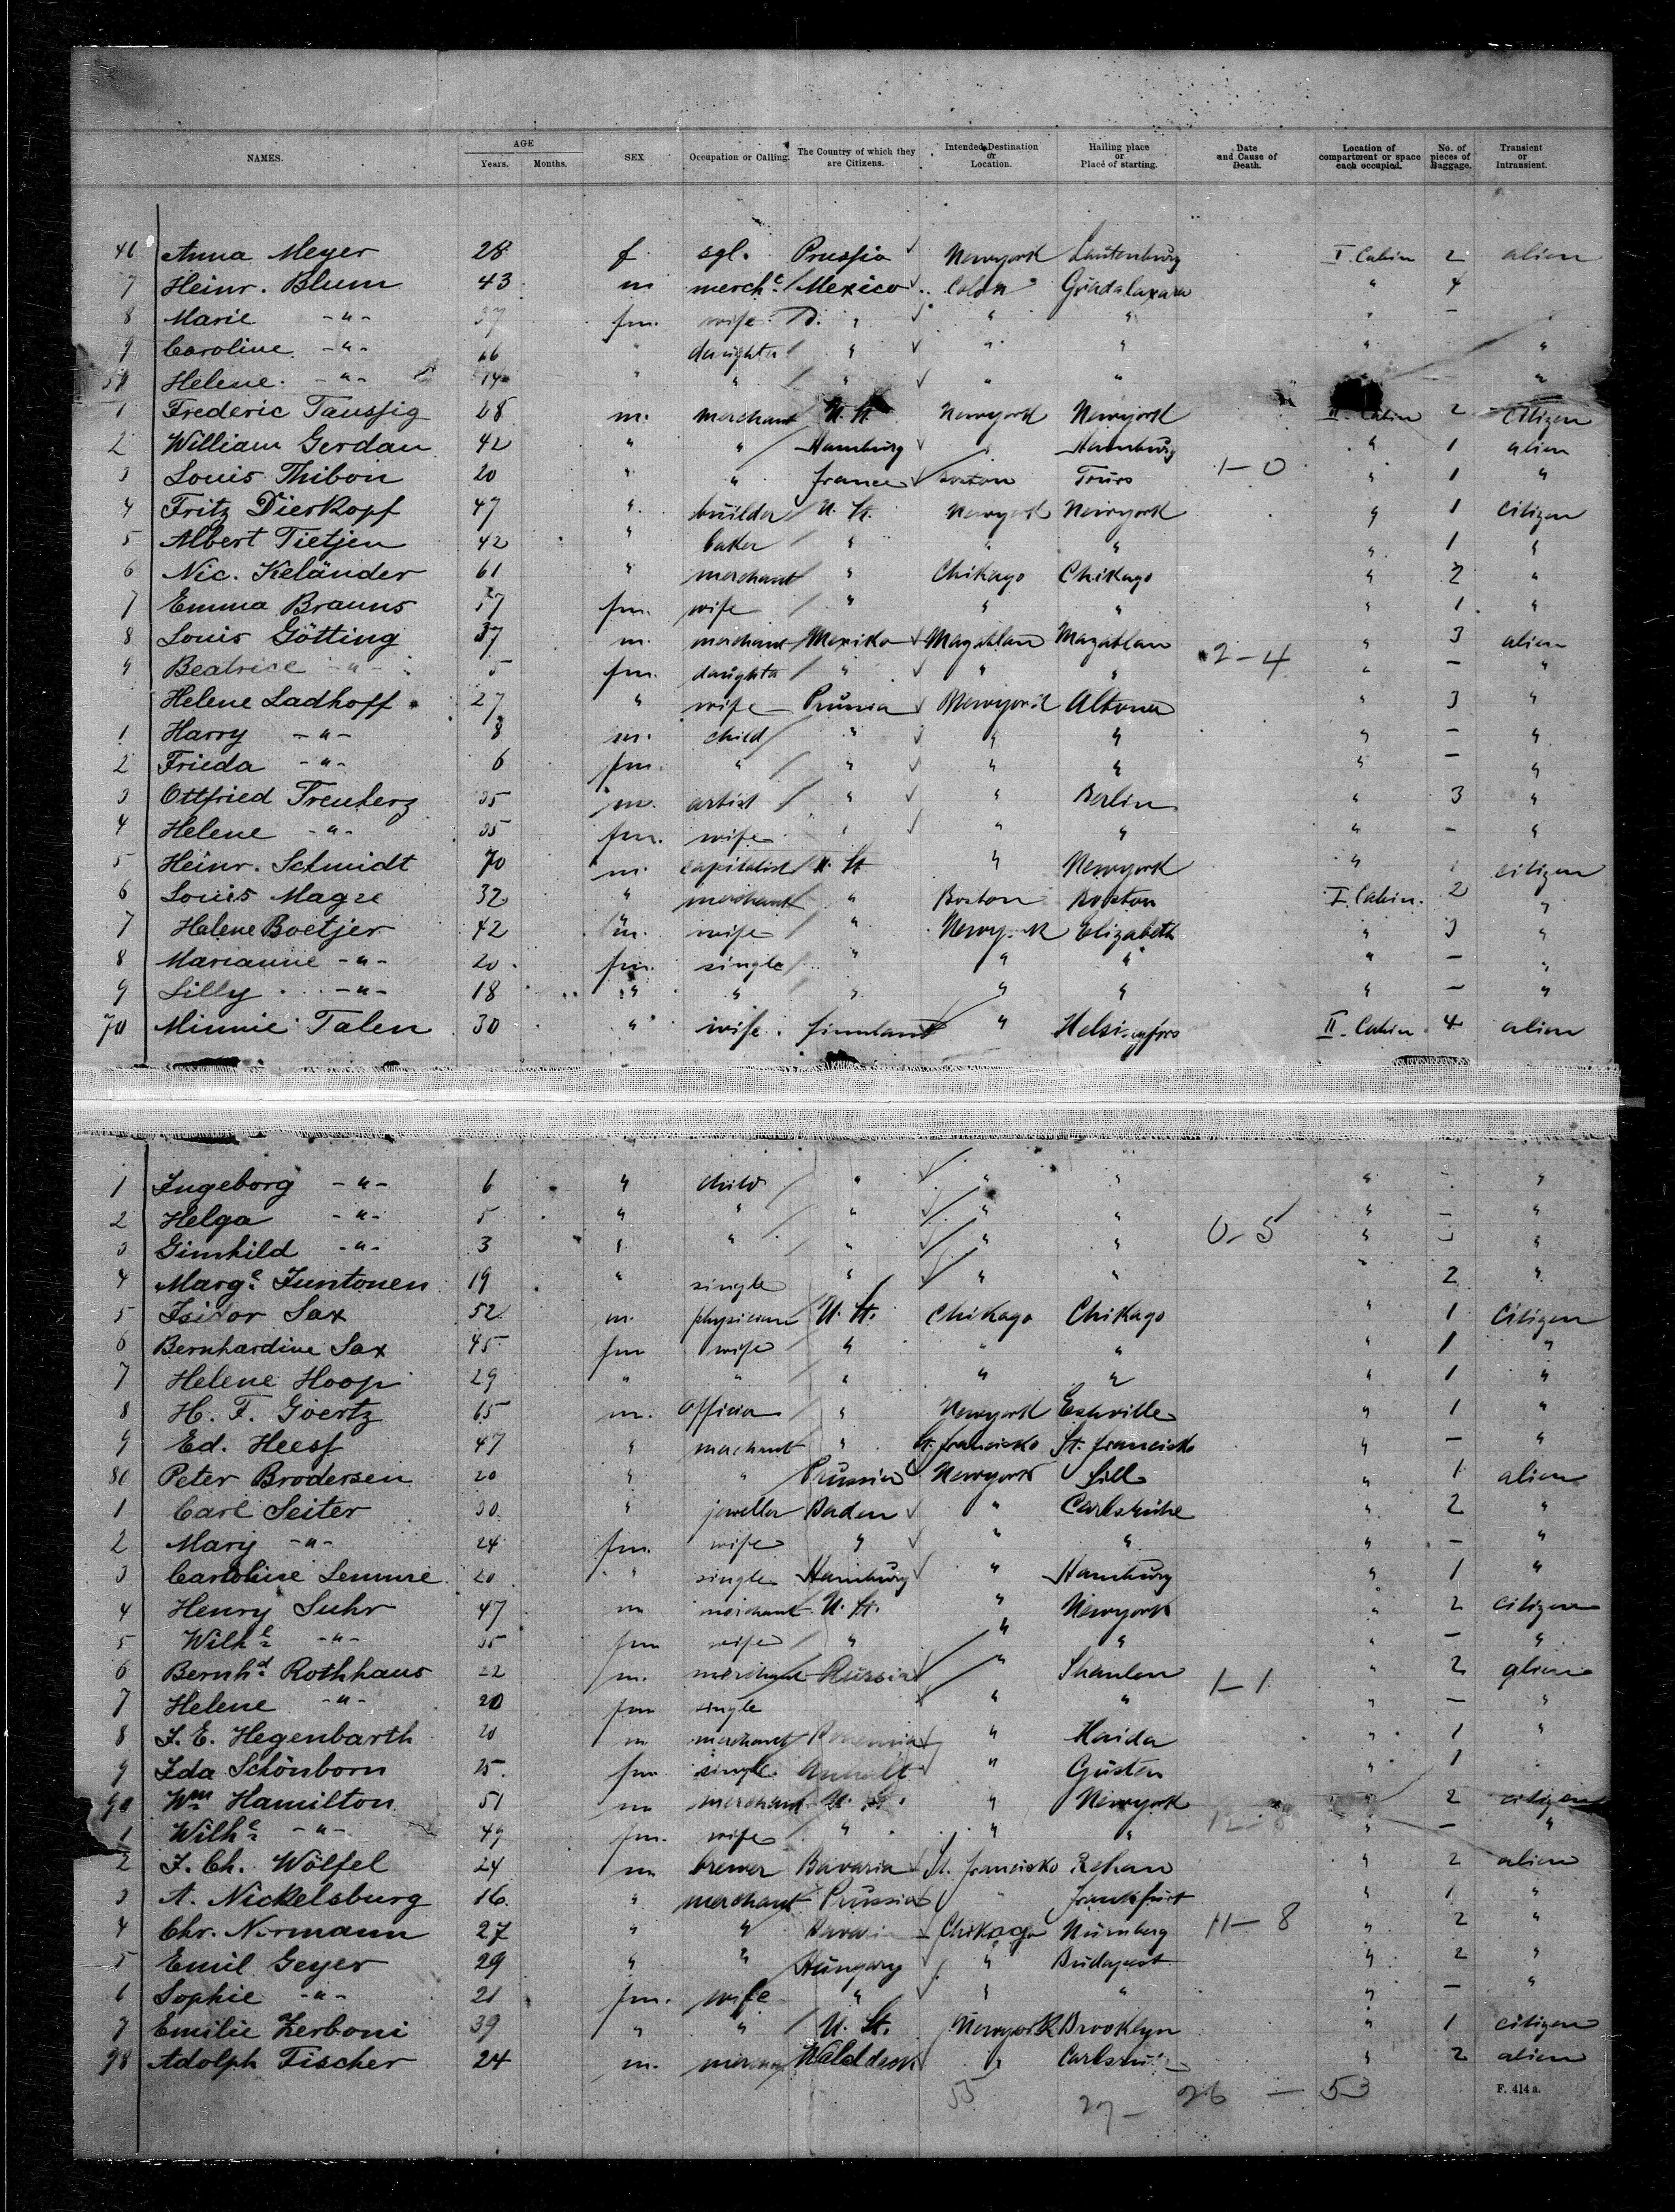 NAMES. AGE Years. Months. SEX Occupation or Calling. The Country of which they are Citizens. Intended Destination or Location. Hailing place or Place of starting. Date and Cause of Death. Location of compartment or space each occupied. No. of pieces of Baggage. Transient or Intransient.
46 Anna Meyer 28 f. sgl. Prussia Newyork Lautenburg I. Cabin 2 alien
7 Heinr. Blum 43 m mercht. Mexico Colon Guadalaxara " 4
8 Marie -"- 37 fm. wife " " " " -
9 Caroline -"- " daughter " " " " "
50 Helene -"- 14 " " " " " - "
1 Frederic Taussig 28 m. merchant U. St. Newyork Newyork II. Cabin 2 citizen
2 William Gerdau 42 " " Hamburg " Hamburg " 1 alien
3 Louis Thibon 20 " " France Boston 1-0 " 1 "
4 Fritz Dierkopf 47 " builder U. St. Newyork Newyork " 1 citizen
5 Albert Tietjen 42 " baker " " " " 1 "
6 Nic. Keländer 61 " merchant " Chikago Chikago " 2 "
7 Emma Brauns 57 fm. wife " " " " 1 "
8 Louis Götting 37 m. merchant Mexiko Mazatlan Mazatlan " 3 alien
9 Beatrice -"- 5 fm. daughter " " " 2-4 " - "
Helene Ladhoff 27 " wife Prussia Newyork Altona " 3 "
1 Harry -"- 8 m. child " " " " - "
2 Frieda -"- 6 fm. " " " " " - "
3 Ottfried Treuherz 35 m. artist " " Berlin " 3 "
4 Helene -"- 35 fm. wife " " " " - "
5 Heinr. Schmidt 70 m. capitalist U. St. " Newyork " 1 citizen
6 Louis Magze 32 " merchant " Boston Boston I. Cabin. 2 "
7 Helene Boetjer 42 wife " Newyork Elizabeth " 3 "
8 Marianne -"- 20 fm. single " " " " - "
9 Lilly -"- 18 " " " " " " - "
70 Minnie Talen 30 " wife Finnland " Helsingfors II. Cabin 4 alien
1 Ingeborg -"- 6 " child " " " " - "
2 Helga -"- 5 " " " " " " - "
3 Gimhild -"- 3 " " " " " 0-5 " - "
4 Marge. Juntonen 19 " single " " " " 2 "
5 Isidor Sax 52 m. physician U. St. Chikago Chikago " 1 citizen
6 Bernhardine Sax 45 fm wife " " " " 1 "
7 Helene Hoop 29 " " " " " " 1 "
8 H. F. Goertz 65 m. " Newyork " 1 "
9 Ed. Heesf 47 " merchant " St. Francisko St. Francisko " - "
80 Peter Brodersen 20 " " Prussia Newyork " 1 alien
1 Carl Seiter 30 " jeweller Baden " Carlsruhe " 2 "
2 Mary -"- 24 fm. wife " " " " - "
3 Caroline Lemme 20 " single Hamburg " Hamburg " 1 "
4 Henry Suhr 47 m merchant U. St. " Newyork " 2 citizen
5 Wilhe. -"- 35 fm wife " " " " - "
6 Bernhd. Rothhaus 22 m. merchant Russia " " 2 alien
7 Helene -"- 20 fm single " " 1-1 " - "
8 J. E. Hegenbarth 20 m merchant Bohemia " Haida " 1 "
9 Ida Schönborn 25 fm single Anhalt " Güsten " 1
90 Wm. Hamilton 51 m merchant U. St. " Newyork " 2 citizen
1 Wilhe. -"- 49 fm. wife " " " 12-8 " - "
2 J. Ch. Wölfel 24 m brewer Bavaria St. Francisko Rehau " 2 alien
3 A. Nickelsburg 16 " merchant Prussia " Frankfurt " 1 "
4 Chr. Normann 27 " " Bavaria Chikago Nürnberg 11-8 " 2 "
5 Emil Geyer 29 " " Hungary " Budapest " 2 "
6 Sophie -"- 21 fm. wife " " " " - "
7 Emilie Zerboni 39 " " U. St. Newyork Brooklyn " 1 citizen
98 Adolph Fischer 24 m. " Carlsruhe " 2 alien
55 27- 26 - 53 F. 414 a.